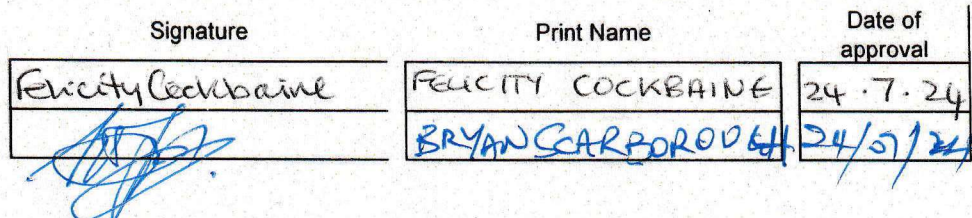 Signature Print Name Date of approval
Felicity Cockbaine FELICITY COCKBAINE 24.7.24
BRYAN SCARBOROUGH. 24/07/24